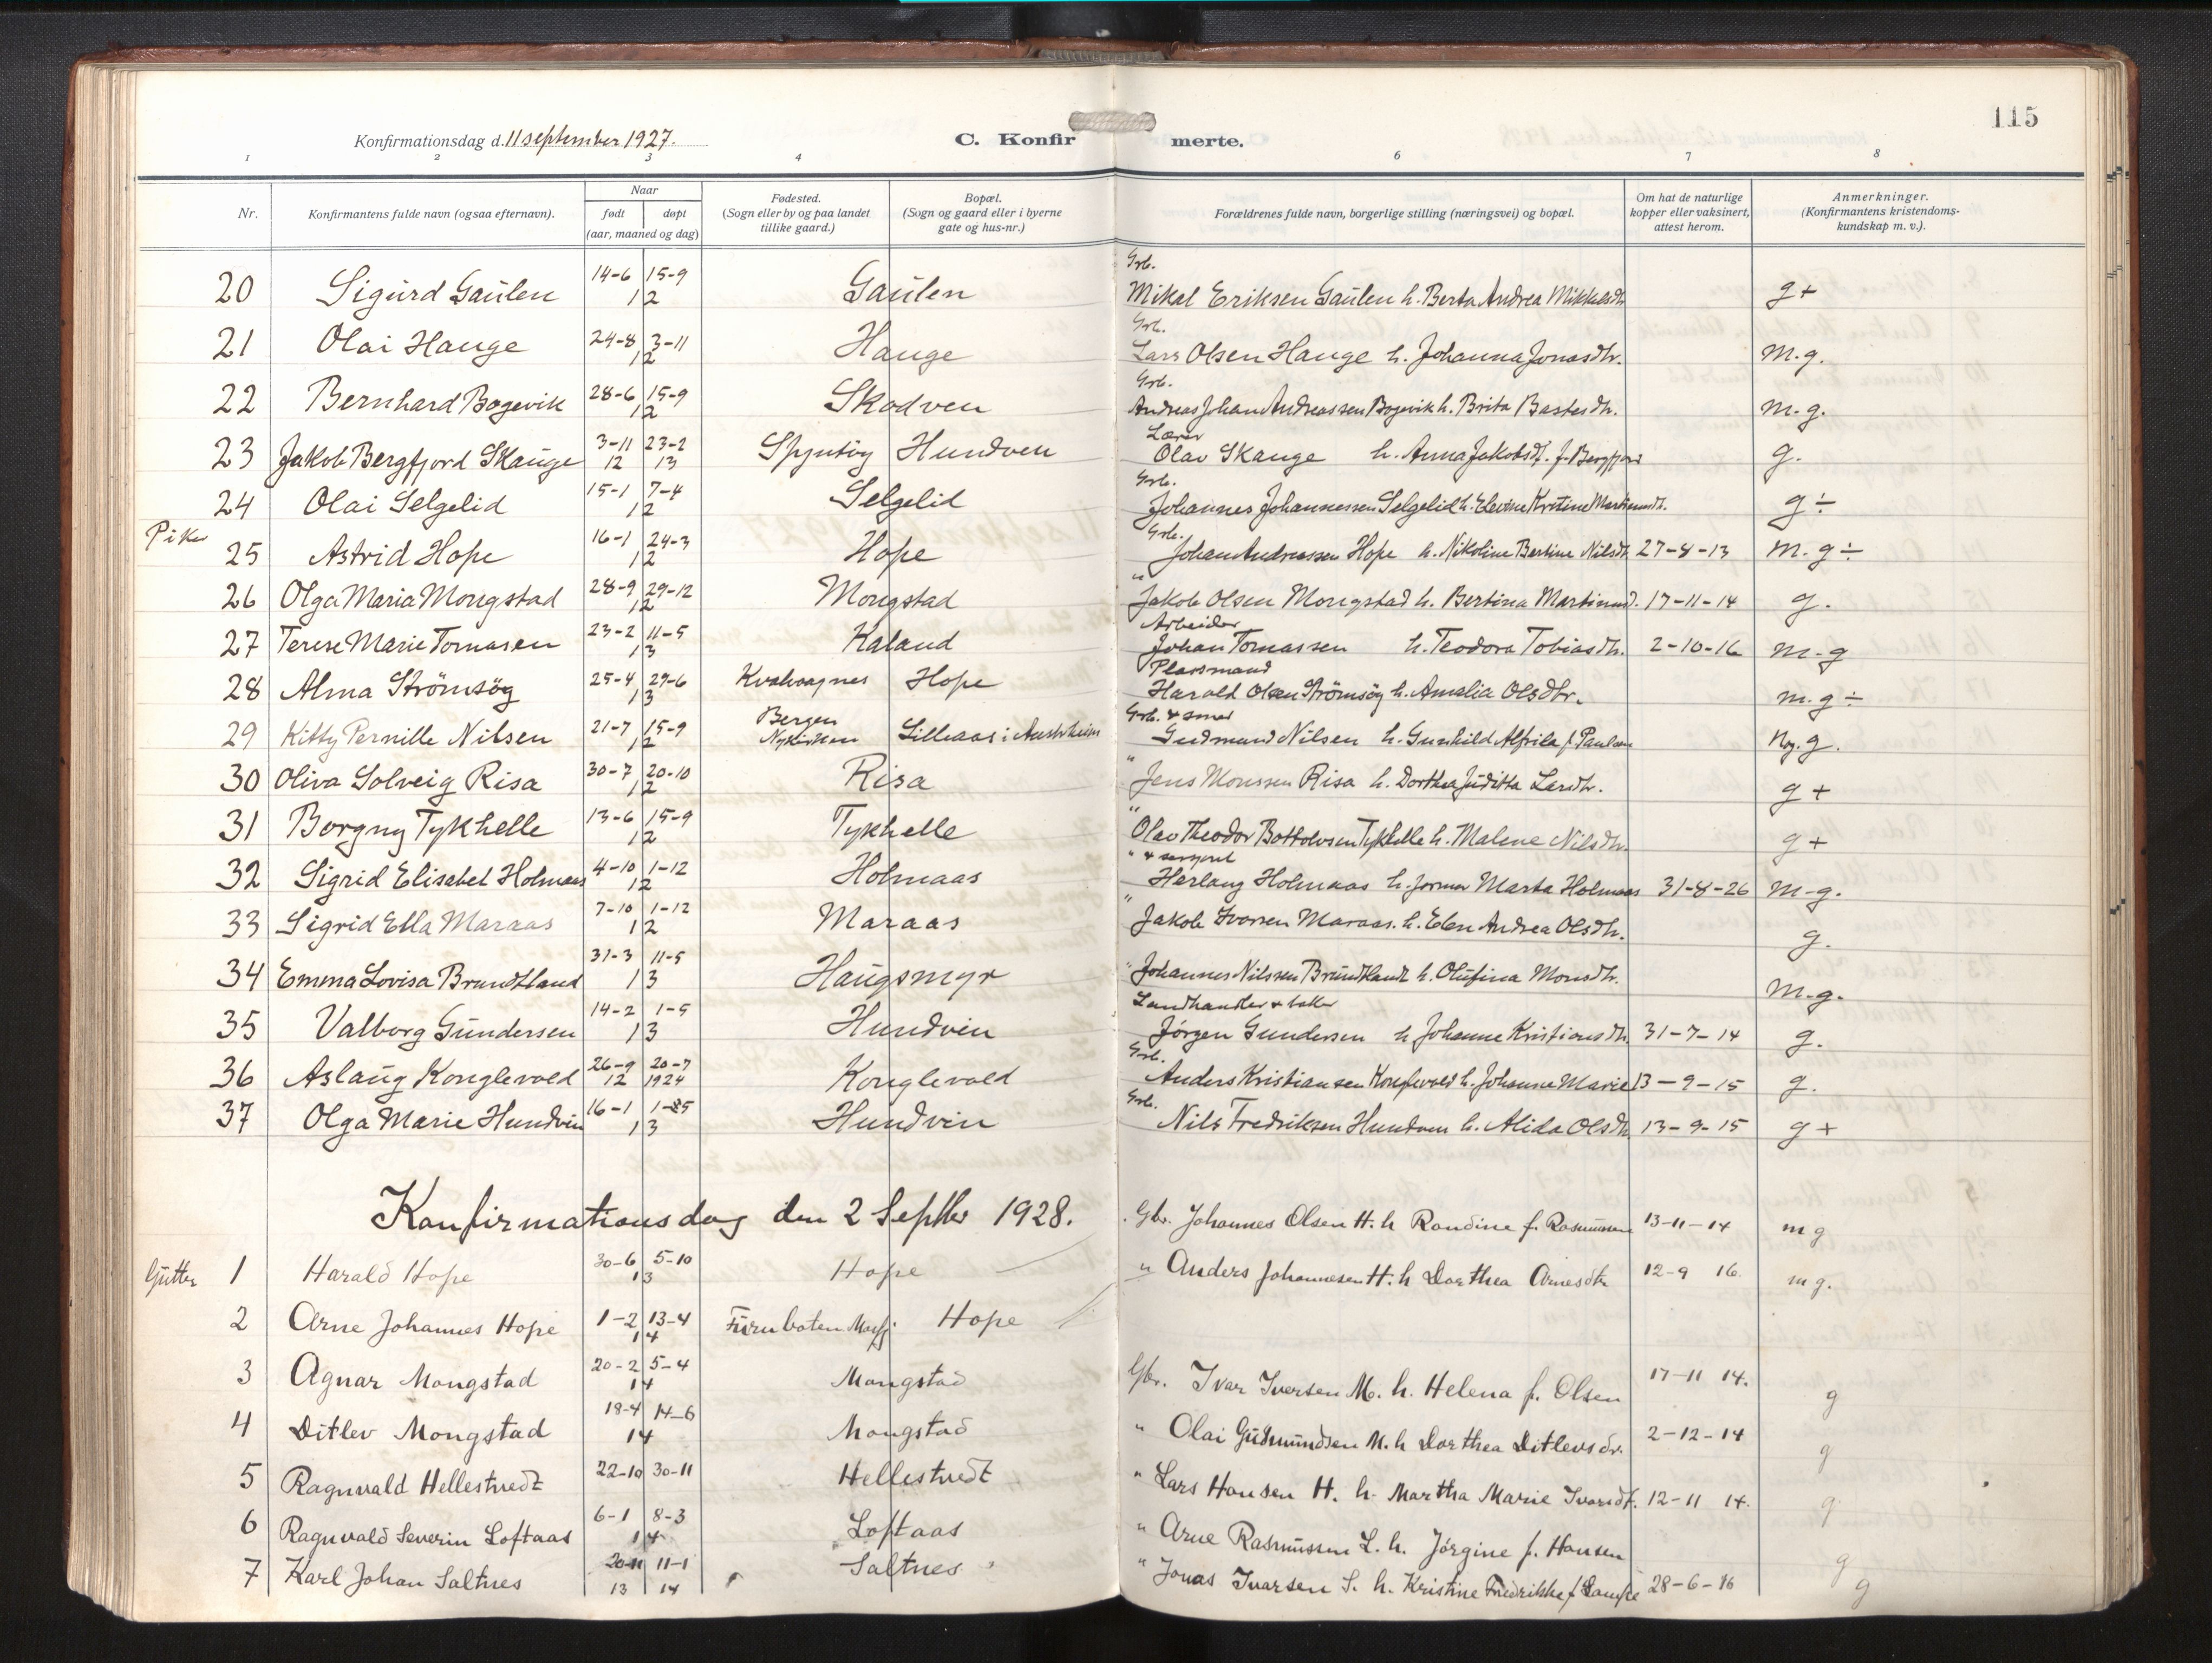 115
Konfirmationsdag d. 11 september 1927.
C. Konfirmerte.
1 2 3 4 6 7 8
Nr.
Konfirmantens fulde navn (ogsaa efternavn).
Naar
født døpt
(aar, maaned og dag)
Fødested.
(Sogn eller by og paa landet
tillike gaard.)
Bopæl.
(Sogn og gaard eller i byerne
gate og hus-nr.)
Forældrenes fulde navn, borgerlige stilling (næringsvei) og bopæl.
Om hat de naturlige
kopper eller vaksinert,
attest herom.
Anmerkninger.
(Konfirmantens kristendoms-
kundskap m. v.).
Grb.
20 Sigurd Gaulen 14-6 15-9 12 Gaulen Mikal Eriksen Gaulen h. Berta Andrea Mikkelsdtr. g+
Grb.
21 Olai Hauge 24-8 3-11 12 Hauge Lars Olsen Hauge h. Johanna Jonasdtr. M.g.
Grb.
22 Bernhard Bogevik 28-6 15-9 12 Skodven Andreas Johan Andreassen Bogevik h. Brita Bastesdtr. m.g.
Lærer
23 Jakob Bergfjord Skauge 3-11 12 23-2 13 Spyntöy Hundven Olav Skauge h. Anna Jakobsdt. f. Bergfjord g.
Grb.
24 Olai Selgelid 15-1 7-4 12 Selgelid Johannes Johannessen Selgelid h. Elevine Kristine g ÷
Piker
Grb.
25 Astrid Hope 16-1 24-3 12 Hope Johan Andreassen Hope h. Nikoline Bertine Nilsdt. 27-8-13 m.g ÷
"
26 Olga Maria Mongstad 28-9 29-12 12 Mongstad Jakob Olsen Mongstad h. Bertina Martinusd. 17-11-14 g.
Arbeider
27 Terese Marie Tomasen 23-2 11-5 13 Kaland Johan Tomassen h. Teodora Tobiasdtr. 2-10-16 m-g
Plassmand
28 Alma Strömsög 25-4 29-6 13 Hope Harald Olsen Strömsög h. Amalia Olsdtr. m.g ÷
Grb. & smed
29 Kitty Pernille Nilsen 21-7 15-9 12 Bergen Nykirken Lilleaas i Austrheim Gudmund Nilsen h. Gunhild Alfrida f. Paulsen Ng. g.
30 Oliva Solveig Risa 30-7 20-10 12 Risa " Jens Monssen Risa h. Dorthea Juditta Larsdtr. g +
31 Borgny Tykhelle 13-6 15-9 12 Tykhelle " Olav Theodor Bottolvsen Tykhelle h. Malene Nilsdtr. g +
" & sersjant
32 Sigrid Elisabet Holmaas 4-10 1-12 12 Holmaas Herlaug Holmaas h. Marta Holmaas 31-8-26 m-g.
33 Sigrid Ella Maraas 7-10 1-12 12 Maraas " Jakob Ivarsen Maraas. h. Elen Andrea Olsdtr. g.
34 Emma Lovisa Brundtland 31-3 11-5 13 Haugsmyr " Johannes Nilssen Brundtland h. Olufina Monsdtr. m.g.
Landhandler & baker
35 Valborg Gundersen 14-2 1-5 13 Hundvin Jørgen Gundersen h Johanne Kristiansdtr. 31-7-14 g.
Grb.
36 Aslaug Konglevold 26-9 12 20-7 1924 Konglevold Anders Kristiansen Konglevold h. Johanne Marie 13-9-15 g.
Grb.
37 Olga Marie Hundvin 16-1 1-5 13 Hundvin Nils Fredriksen Hundven h. Alida Olsdtr. 13-9-15 g +
Konfirmationsdag den 2 Septbr 1928.
Gutter 1 Harald Hope 30-6 5-10 13 Hope Gbr. Johannes Olsen H. h Randine f. Rasmussen 13-11-14 mg
2 Arne Johannes Hope 1-2 13-4 14 Furuboten Hope " Anders Johannesen H. h Dorthea Arnesdtr 12-9 16. mg.
3 Agnar Mongstad 20-2 5-4 14 Mongstad Gbr. Ivar Iversen M. h. Helena f. Olsen 17-11 14. g
4 Ditlev Mongstad 18-4 14-6 14 Mongstad " Olai Gudmundsen M. h Dorthea Ditlevsdr. 2-12-14 g
5 Ragnvald Hellestvedt 22-10 30-11 Hellestvedt " Lars Hansen H. h. Martha Marie Ivarsdt. 12-11 14. g
6 Ragnvald Severin Loftaas 6-1 8-3 14 Loftaas " Arne Rasmussen L. h. Jørgine f. Hansen g
7 Karl Johan Saltnes 20-11 13 11-1 14 Saltnes " Jonas Ivarsen S. h. Kristine Fredrikke f. 28-6-16 g